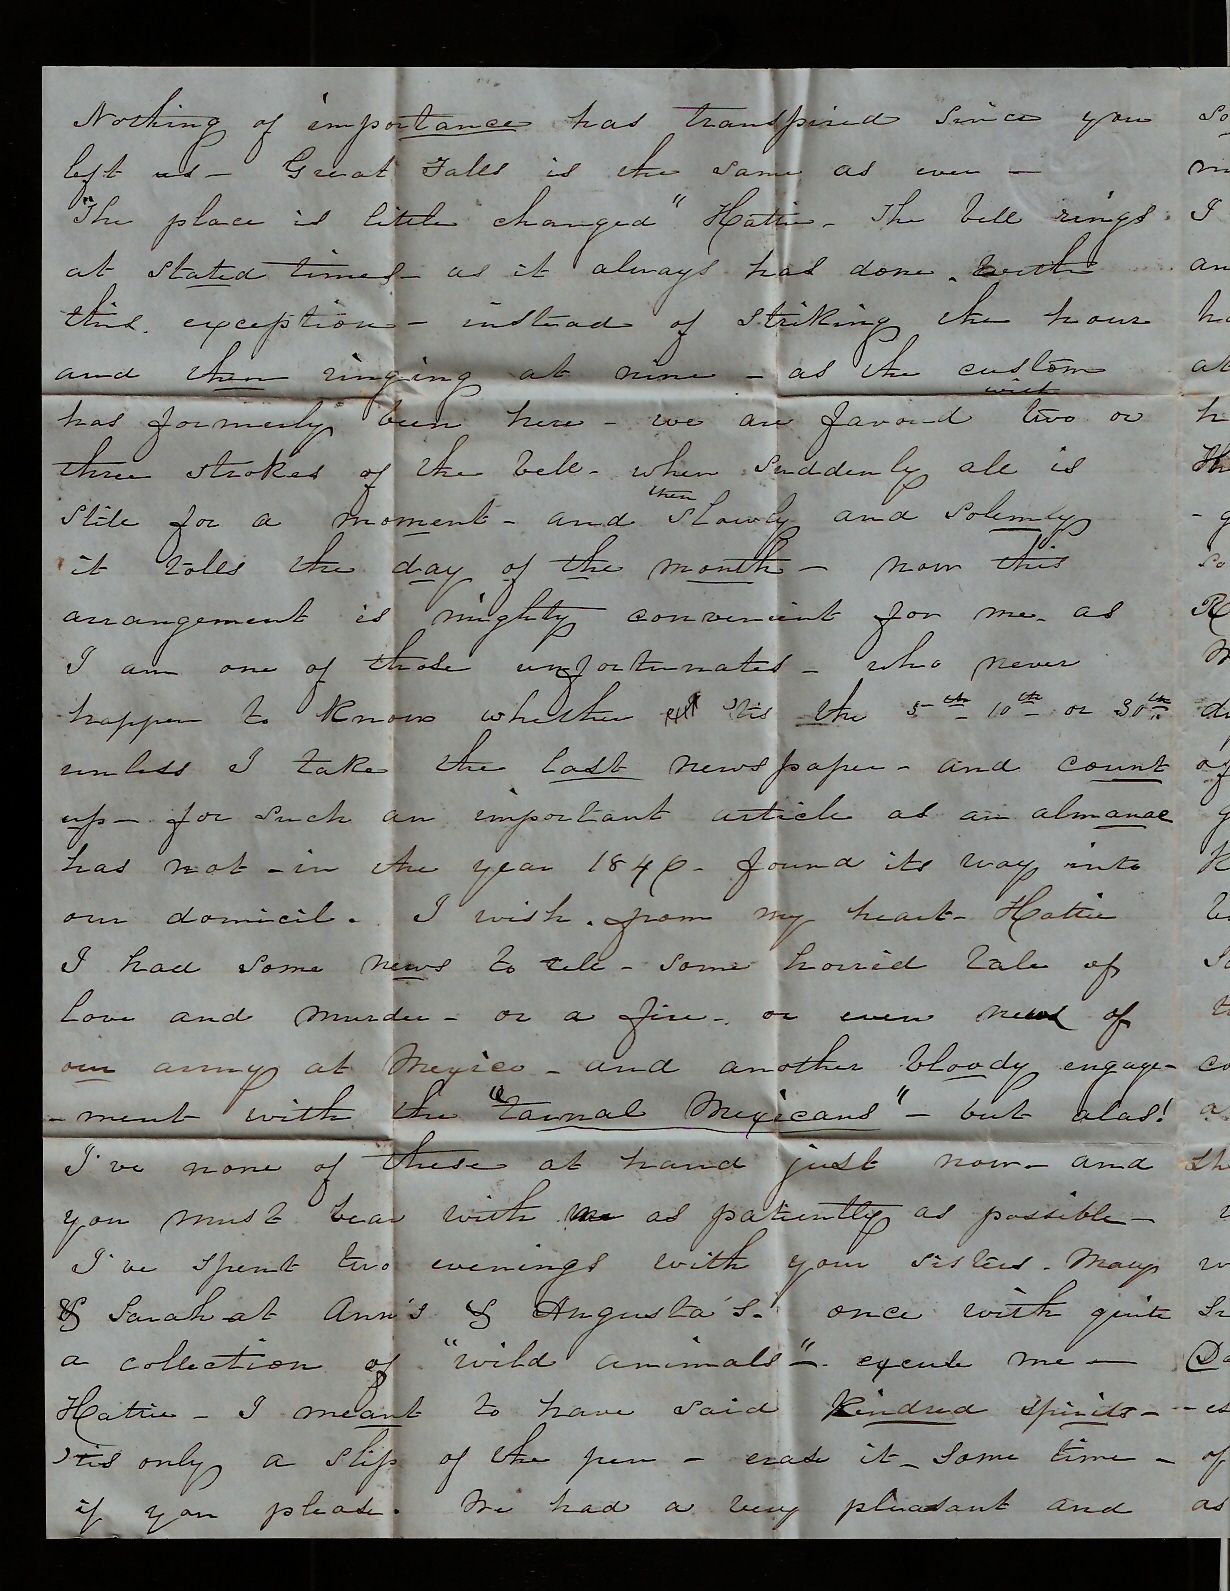 Nothing of importance has transpired since you
left us - Great Falls is the same as ever -
"The place is little changed" Hattie - The bell rings
at stated times - as it always has done, with
this exception - instead of striking the hour
and then ringing at nine - as the custom
has formerly been here - we are favored with two or
three strokes of the bell - when suddenly all is
still for a moment - and then slowly and solemnly
it tolls the day of the month - now this
arrangement is mighty convenient for me - as
I am one of those unfortunates - who never
happen to know whether 'tis the 5th 10th or 30th
unless I take the last newspaper - and count
up - for such an important article as an almanac
has not - in the year 184 - found its way into
our domicil. I wish - from my heart - Hattie
I had some news to tell - some horrid tale of
love and murder - or a fire - or even news of
our army at Mexico - and another bloody engage-
-ment with the "tarnal Mexicans" - but alas!
I've none of these at hand just now - and
you must bear with me as patiently as possible -
I've spent two evenings with your sisters - Mary
& Sarah at Ann's & Augusta's - once with quite
a collection of "wild animals" - excuse me -
Hattie - I meant to have said kindred spirits -
'tis only a slip of the pen - erase it - some time -
if you please. We had a very pleasant and